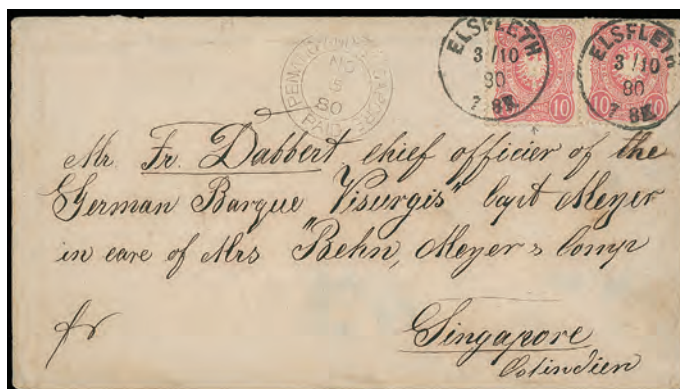 ELSFLETH
3/10
80
7-8N.
10
ELSFLETH
3/10
80
7-8N.
10
10
SINGAPORE
NO
5
80
PAID
Mr. Fr. Dabbert, chief officier of the
German Barque "Visurgis" Capt Meyer
in care of Mrs "Behn, Meyer & Comp
fr
Singapore
Ostindien